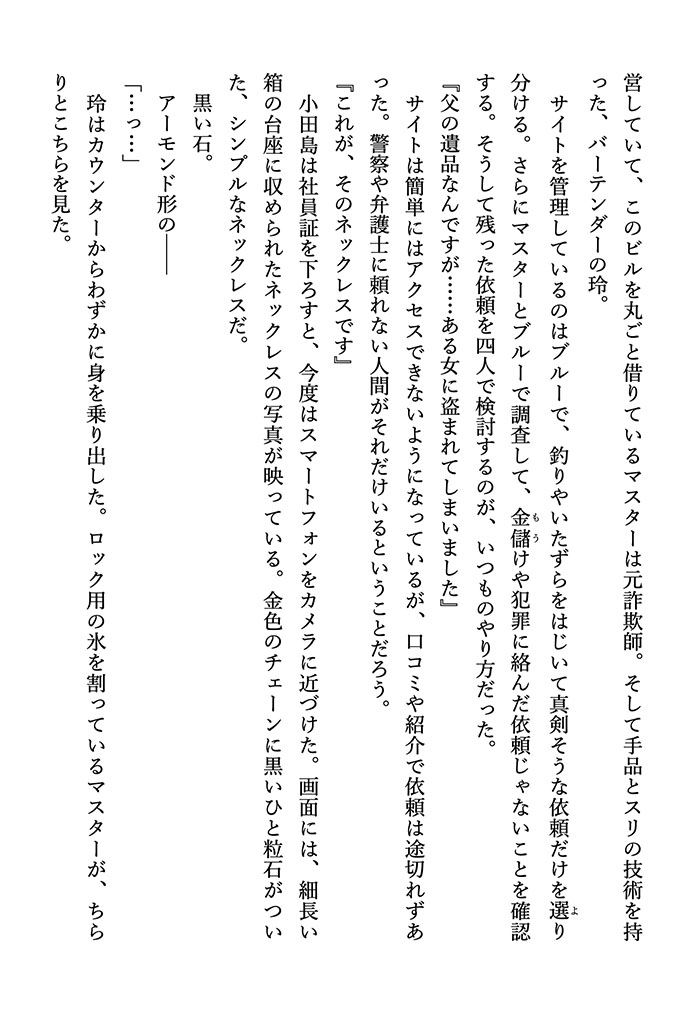 営していて、このビルを丸ごと借りているマスターは元詐欺師。そして手品とスリの技術を持
った、バーテンダーの玲。
サイトを管理しているのはブルーで、釣りやいたずらをはじいて真剣そうな依頼だけを選り
分ける。さらにマスターとブルーで調査して、金儲けや犯罪に絡んだ依頼じゃないことを確認
する。そうして残った依頼を四人で検討するのが、いつものやり方だった。
『父の遺品なんですが……ある女に盗まれてしまいました』
サイトは簡単にはアクセスできないようになっているが、口コミや紹介で依頼は途切れずあ
った。警察や弁護士に頼れない人間がそれだけいるということだろう。
『これが、そのネックレスです』
小田島は社員証を下ろすと、今度はスマートフォンをカメラに近づけた。画面には、細長い
箱の台座に収められたネックレスの写真が映っている。金色のチェーンに黒いひと粒石がつい
た、シンプルなネックレスだ。
黒い石。
アーモンド形の――
「…っ…」
玲はカウンターからわずかに身を乗り出した。ロック用の氷を割っているマスターが、ちら
りとこちらを見た。